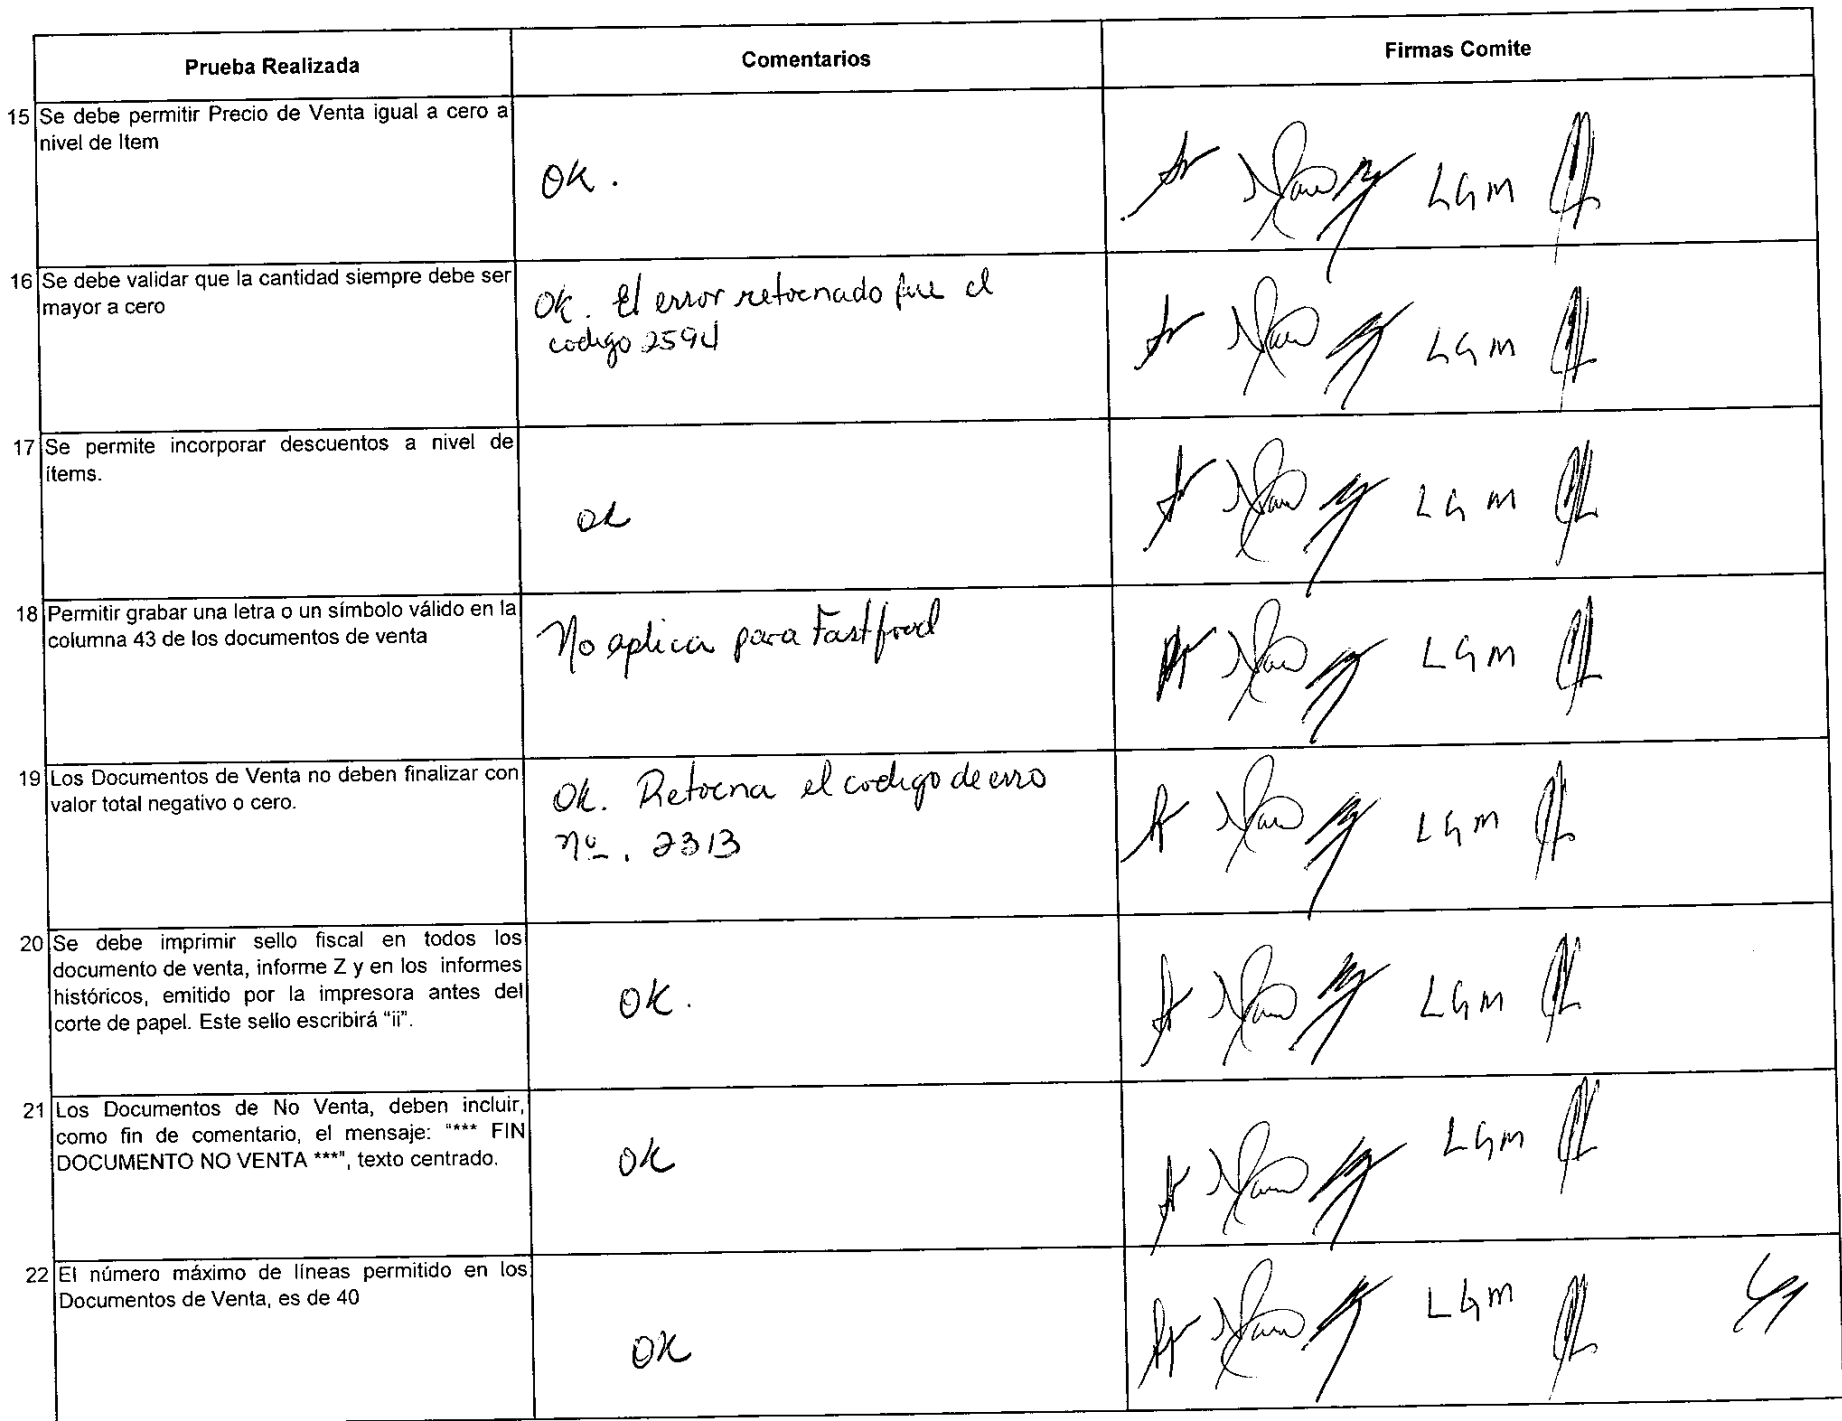 Prueba Realizada
Comentarios
Firmas Comite
15 Se debe permitir Precio de Venta igual a cero a
nivel de Item
OK.
LGM
16 Se debe validar que la cantidad siempre debe ser
mayor a cero
OK. El error retornado fue el
codigo 2594
LGM
17 Se permite incorporar descuentos a nivel de
ítems.
ok
LGM
18 Permitir grabar una letra o un símbolo válido en la
columna 43 de los documentos de venta
No aplica para Fastfood
LGM
19 Los Documentos de Venta no deben finalizar con
valor total negativo o cero.
Ok. Retorna el codigo de erro
nº. 2313
LGM
20 Se debe imprimir sello fiscal en todos los
documento de venta, informe Z y en los informes
históricos, emitido por la impresora antes del
corte de papel. Este sello escribirá “ii”.
OK.
LGM
21 Los Documentos de No Venta, deben incluir,
como fin de comentario, el mensaje: "*** FIN
DOCUMENTO NO VENTA ***", texto centrado.
OK
LGM
22 El número máximo de líneas permitido en los
Documentos de Venta, es de 40
OK
LGM